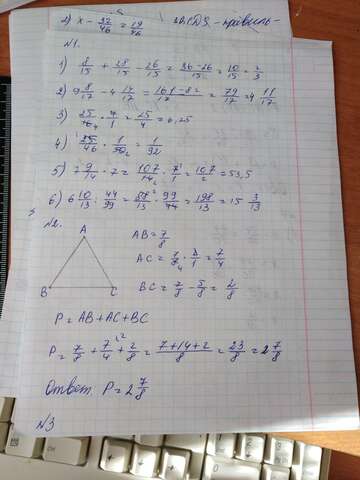 2) x - 32/46 = 19/46
N1.
1) 8/15 + 28/15 - 26/15 = 36-26/15 = 10/15 = 2/3
2) 9 8/17 - 4 14/17 = 161-82/17 = 79/17 = 4 11/17
3) 25/16 4 · 4/1 = 25/4 = 6,25
4) 1/46 · 1/2 = 1/92
5) 7 9/14 · 7 = 107/14 2 · 7 1/1 = 107/2 = 53,5
6) 6 10/13 : 44/99 = 88 2/13 · 99/44 = 198/13 = 15 3/13
N2.
A
B C
AB = 7/8
AC = 7/8 4 · 2/1 = 7/4
BC = 7/8 - 5/8 = 2/8
P = AB + AC + BC
P = 7/8 + 7/4 + 2/8 = 7+14+2/8 = 23/8 = 2 7/8
Ответ: P = 2 7/8
N3